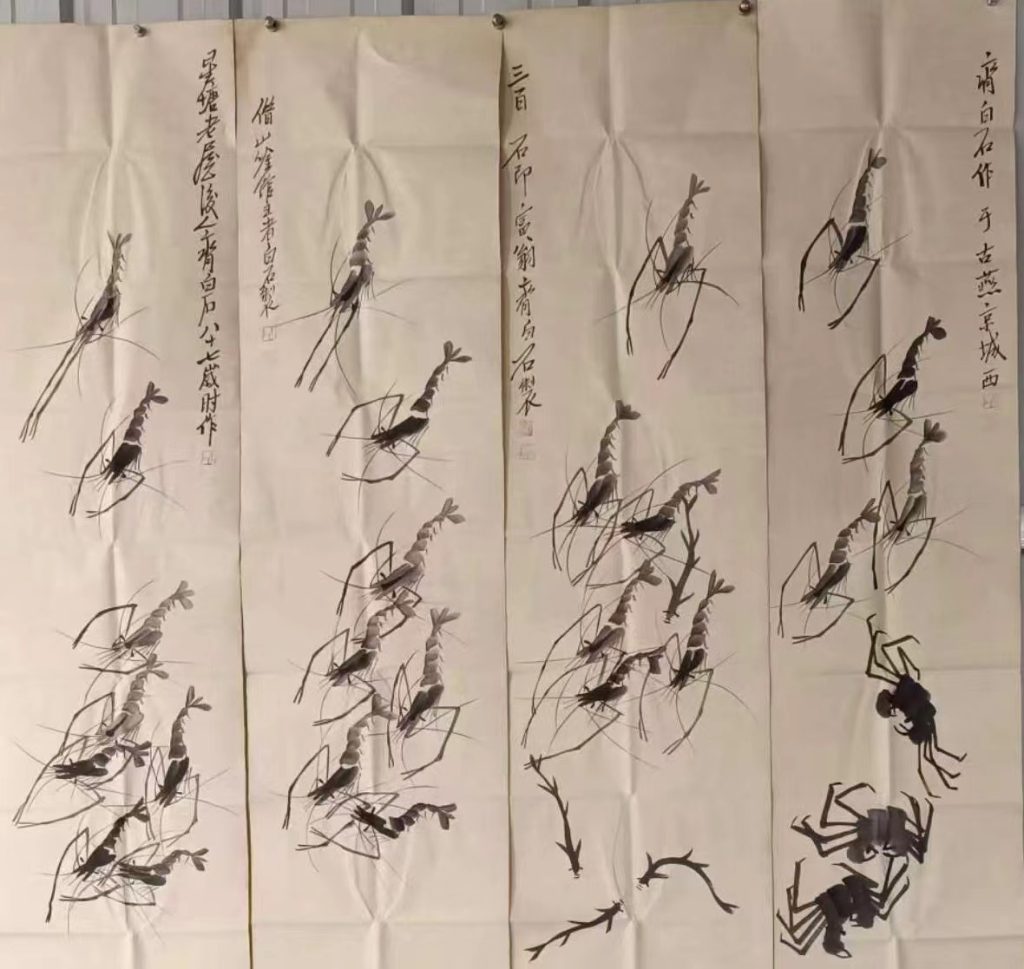 齊白石作于古燕京城西
三百石印富翁齊白石製
借山吟館主者白石製
星塘老屋後人齊白石八十七歲时作